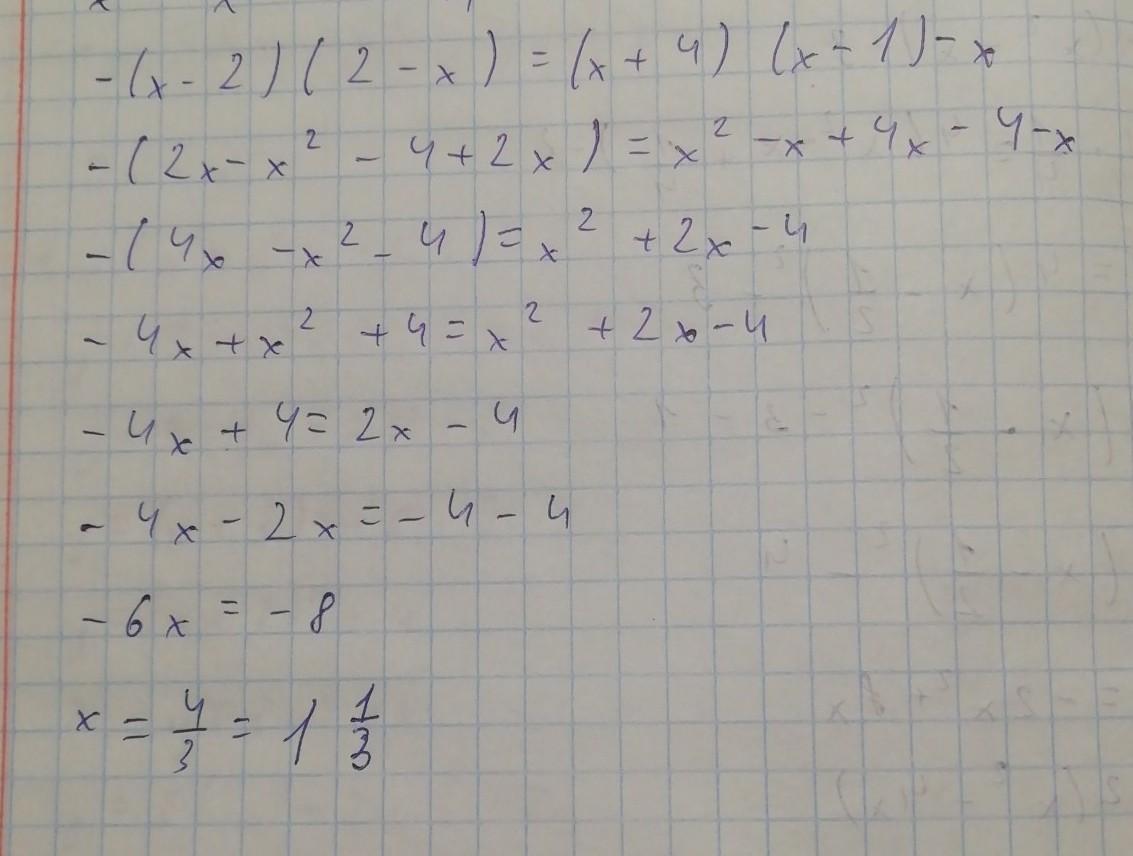 -(x-2)(2-x) = (x+4) (x-1)-x
-(2x-x² - 4+2x) = x² -x+4x-4-x
-(4x -x² - 4)= x² +2x-4
-4x+x² +4= x² +2x-4
-4x+4= 2x-4
-4x-2x=-4-4
-6x = -8
x = 4/3 = 1 1/3